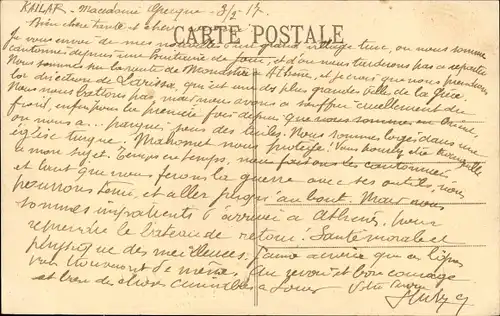 KAILAR - Macédoine Grecque - 3/2 - 17.
Bien chère tante et cher
CARTE POSTALE
Je vous envoie de mes nouvelles d'un grand village turc, ou nous sommes
cantonnés depuis une quinzaine de jours, et d'ou nous tarderons pas a repartir
Nous sommes sur la route de Monastir a Athènes, et je crois que nous prendrons
la direction de Larissa, qui est une des plus grandes ville de la Grèce.
Nous nous battons pas, mais nous avons a souffrir cruellement du
froid, enfin, pour la première fois depuis que nous sommes en Orient,
on nous a parqués sous des tuiles. Nous sommes logés dans une
église turque. Mahomet nous protège! Vous pouvez être tranquilles
a mon sujet. Temps en temps, nous faisons des cantonnements
et tant que nous ferons la guerre avec ses outils, nous
pourrons tenir, et aller jusqu'au bout. Mais nous
sommes impatients d'arriver a Athènes, pour
reprendre le bateau de retour! Santé morale et
physique des meilleures. J'aime a croire que ces lignes
vous trouveront de même. Au revoir et bon courage
et bien de choses aimables a tous. Votre neveu